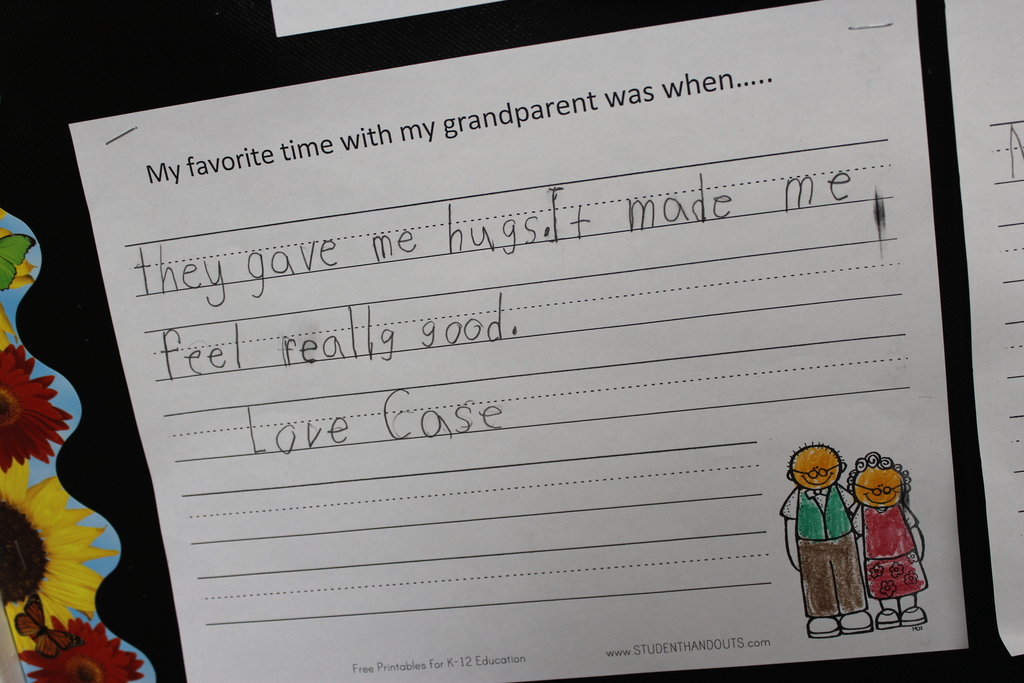 My favorite time with my grandparent was when.....
they gave me hugs. It made me
feel really good.
Love Case
Free Printables for K-12 Education
www.STUDENTHANDOUTS.com